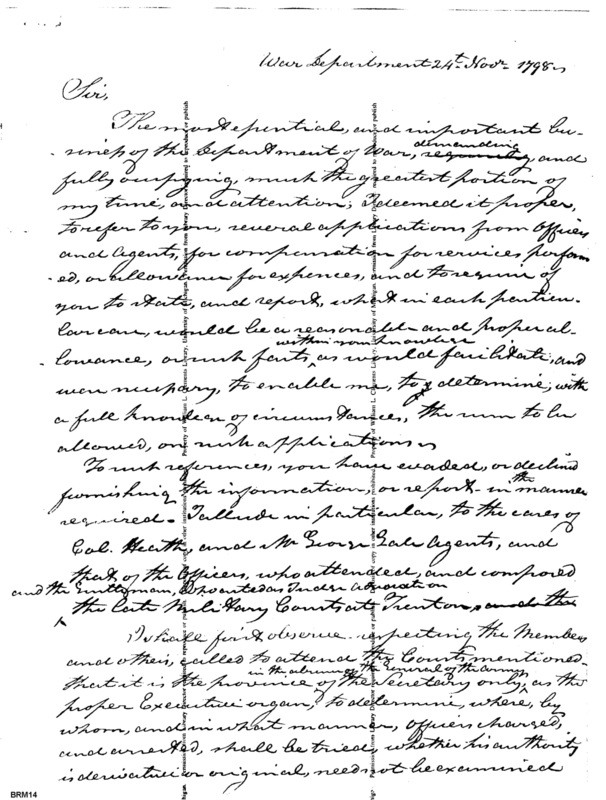 War Department 24th Novr 1798
Sir,
The most essential, and important bu-
siness of the Department of War, demanding requiring, and
fully occupying, much the greatest portion of
my time, and attention; I deemed it proper,
to refer to you, several applications from Officers
and Agents, for compensation for services perform
-ed, or allowance for expences, and to require of
you to state, and report, what in each particu-
lar case, would be a reasonable and proper al-
lowance, or such facts, within your knowledge as would facilitate, and
were necessary, to enable me, to determine, with
a full knowledge of circumstances, the sum to be
allowed, on such applications
To such references, you have evaded, or declined
furnishing the information, or report in the manner
required. I allude in particular, to the cases of
Col. Heath, and Mr George Gale Agents, and
that, of the Officers, who attended, and composed
and the Gentleman, who acted as Judge Advocate on
the late Military Courts at Trenton, and the
I shall first observe respecting the Members
and others, called to attend the Courts mentioned
that it is the province in the absence of the General of the army of the Secretary only, as the
proper Executive organ, to determine, where, by
whom, and in what manner, officers charged,
and arrested, shall be tried, whether his authority
is derivative or original, need not be examined
Property of William L. Clements Library
BRM14